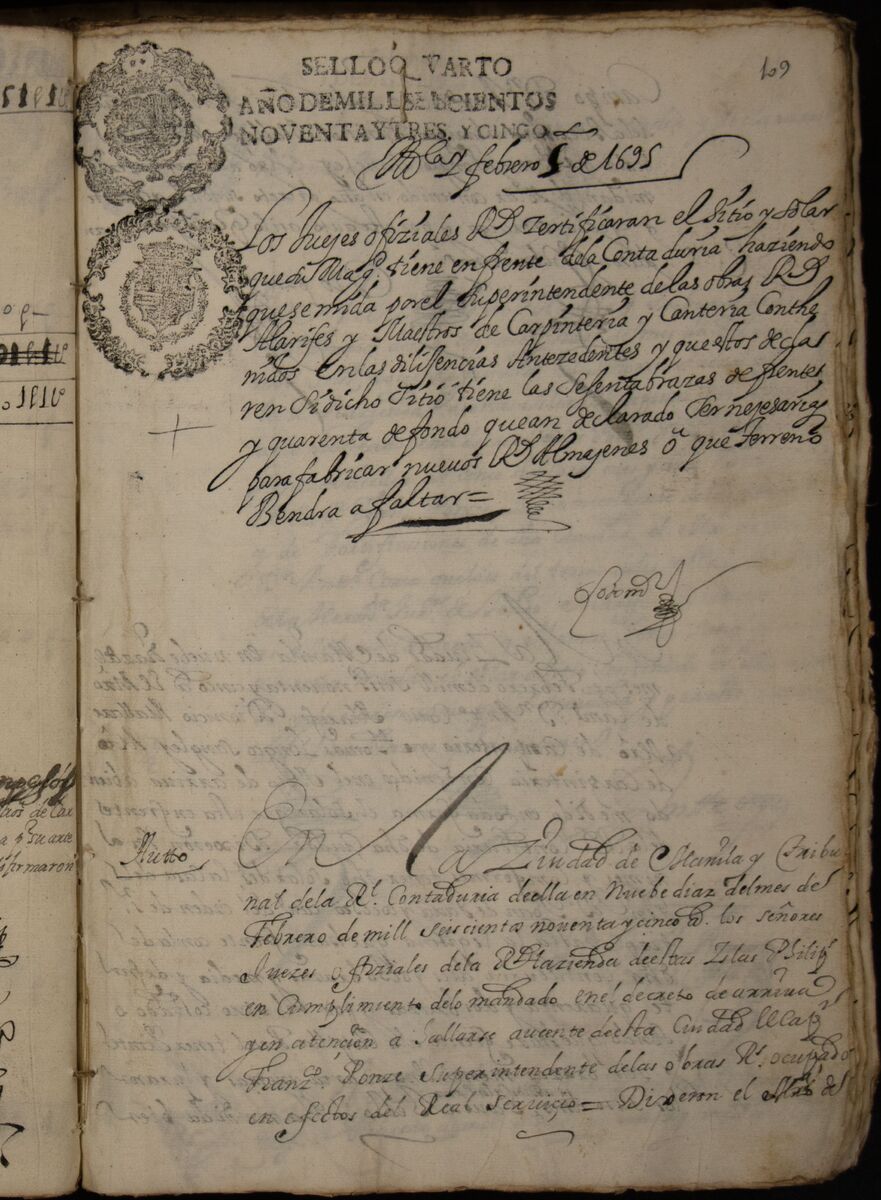 SELLO QVARTO
AÑO DE MILL SEISCIENTOS
NOVENTA Y TRES, Y CINCO
69
febrero 5 de 1695
Los Juejes ofiziales Rs Zertificaran el Sitio y Solar
que su Magd tiene enfrente dela Contaduria haziendo
que se mida por el Superintendente de las obras Rs
Alarifes y Maestros de Carpinteria y Canteria Conthe
nidos en las dilisencias Antezedentes y que estos decla
ren Si dicho Sitio tiene las Sesenta brazas de frentes
y quarenta de fondo que an declarado Ser nesesarias
para fabricar nuevos Rs Almajenes ô que Terreno
Bendra a faltar =
Autto
En la Ziudad de Manila y Tribu
nal dela Rl. Contaduria de ella en Nuebe diaz del mes de
Febrero de mill seiscientos noventa y cinco as. los señores
Juezes ofiziales dela Rl Hazienda de estas Yslas Philips
en Cumplimiento delo mandado en el decreto de arriva
y en atencion a hallarse aucente de esta Ciudad el Capn
Franzco Ponze Superintendente delas obras Rs. ocupado
en efectos del Real Serviçio = Dixeron el Mro del